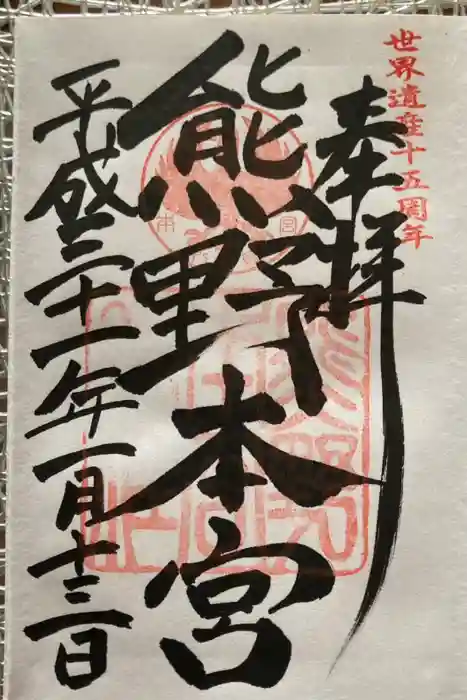 世界遺産十五周年
奉拝
熊野本宮
平成三十一年一月十三日
本宮